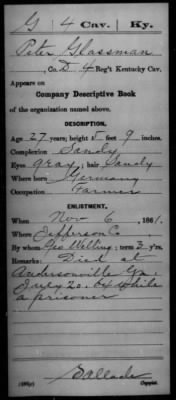 G 4 Cav. Ky.
Peter Glassman
, Co. D 4 Reg't Kentucky Cav.
Appears on
Company Descriptive Book
of the organization named above.
DESCRIPTION.
Age 27 years; height 5 feet 9 inches.
Complexion Sandy
Eyes gray; hair Sandy
Where born Germany
Occupation Farmer
ENLISTMENT.
When Nov 6, 1861.
Where Jefferson Co
By whom Geo Welling; term 3 y'rs.
Remarks: Died at
Andersonville Ga.
July 20. 64 while
a prisoner
Copyist.